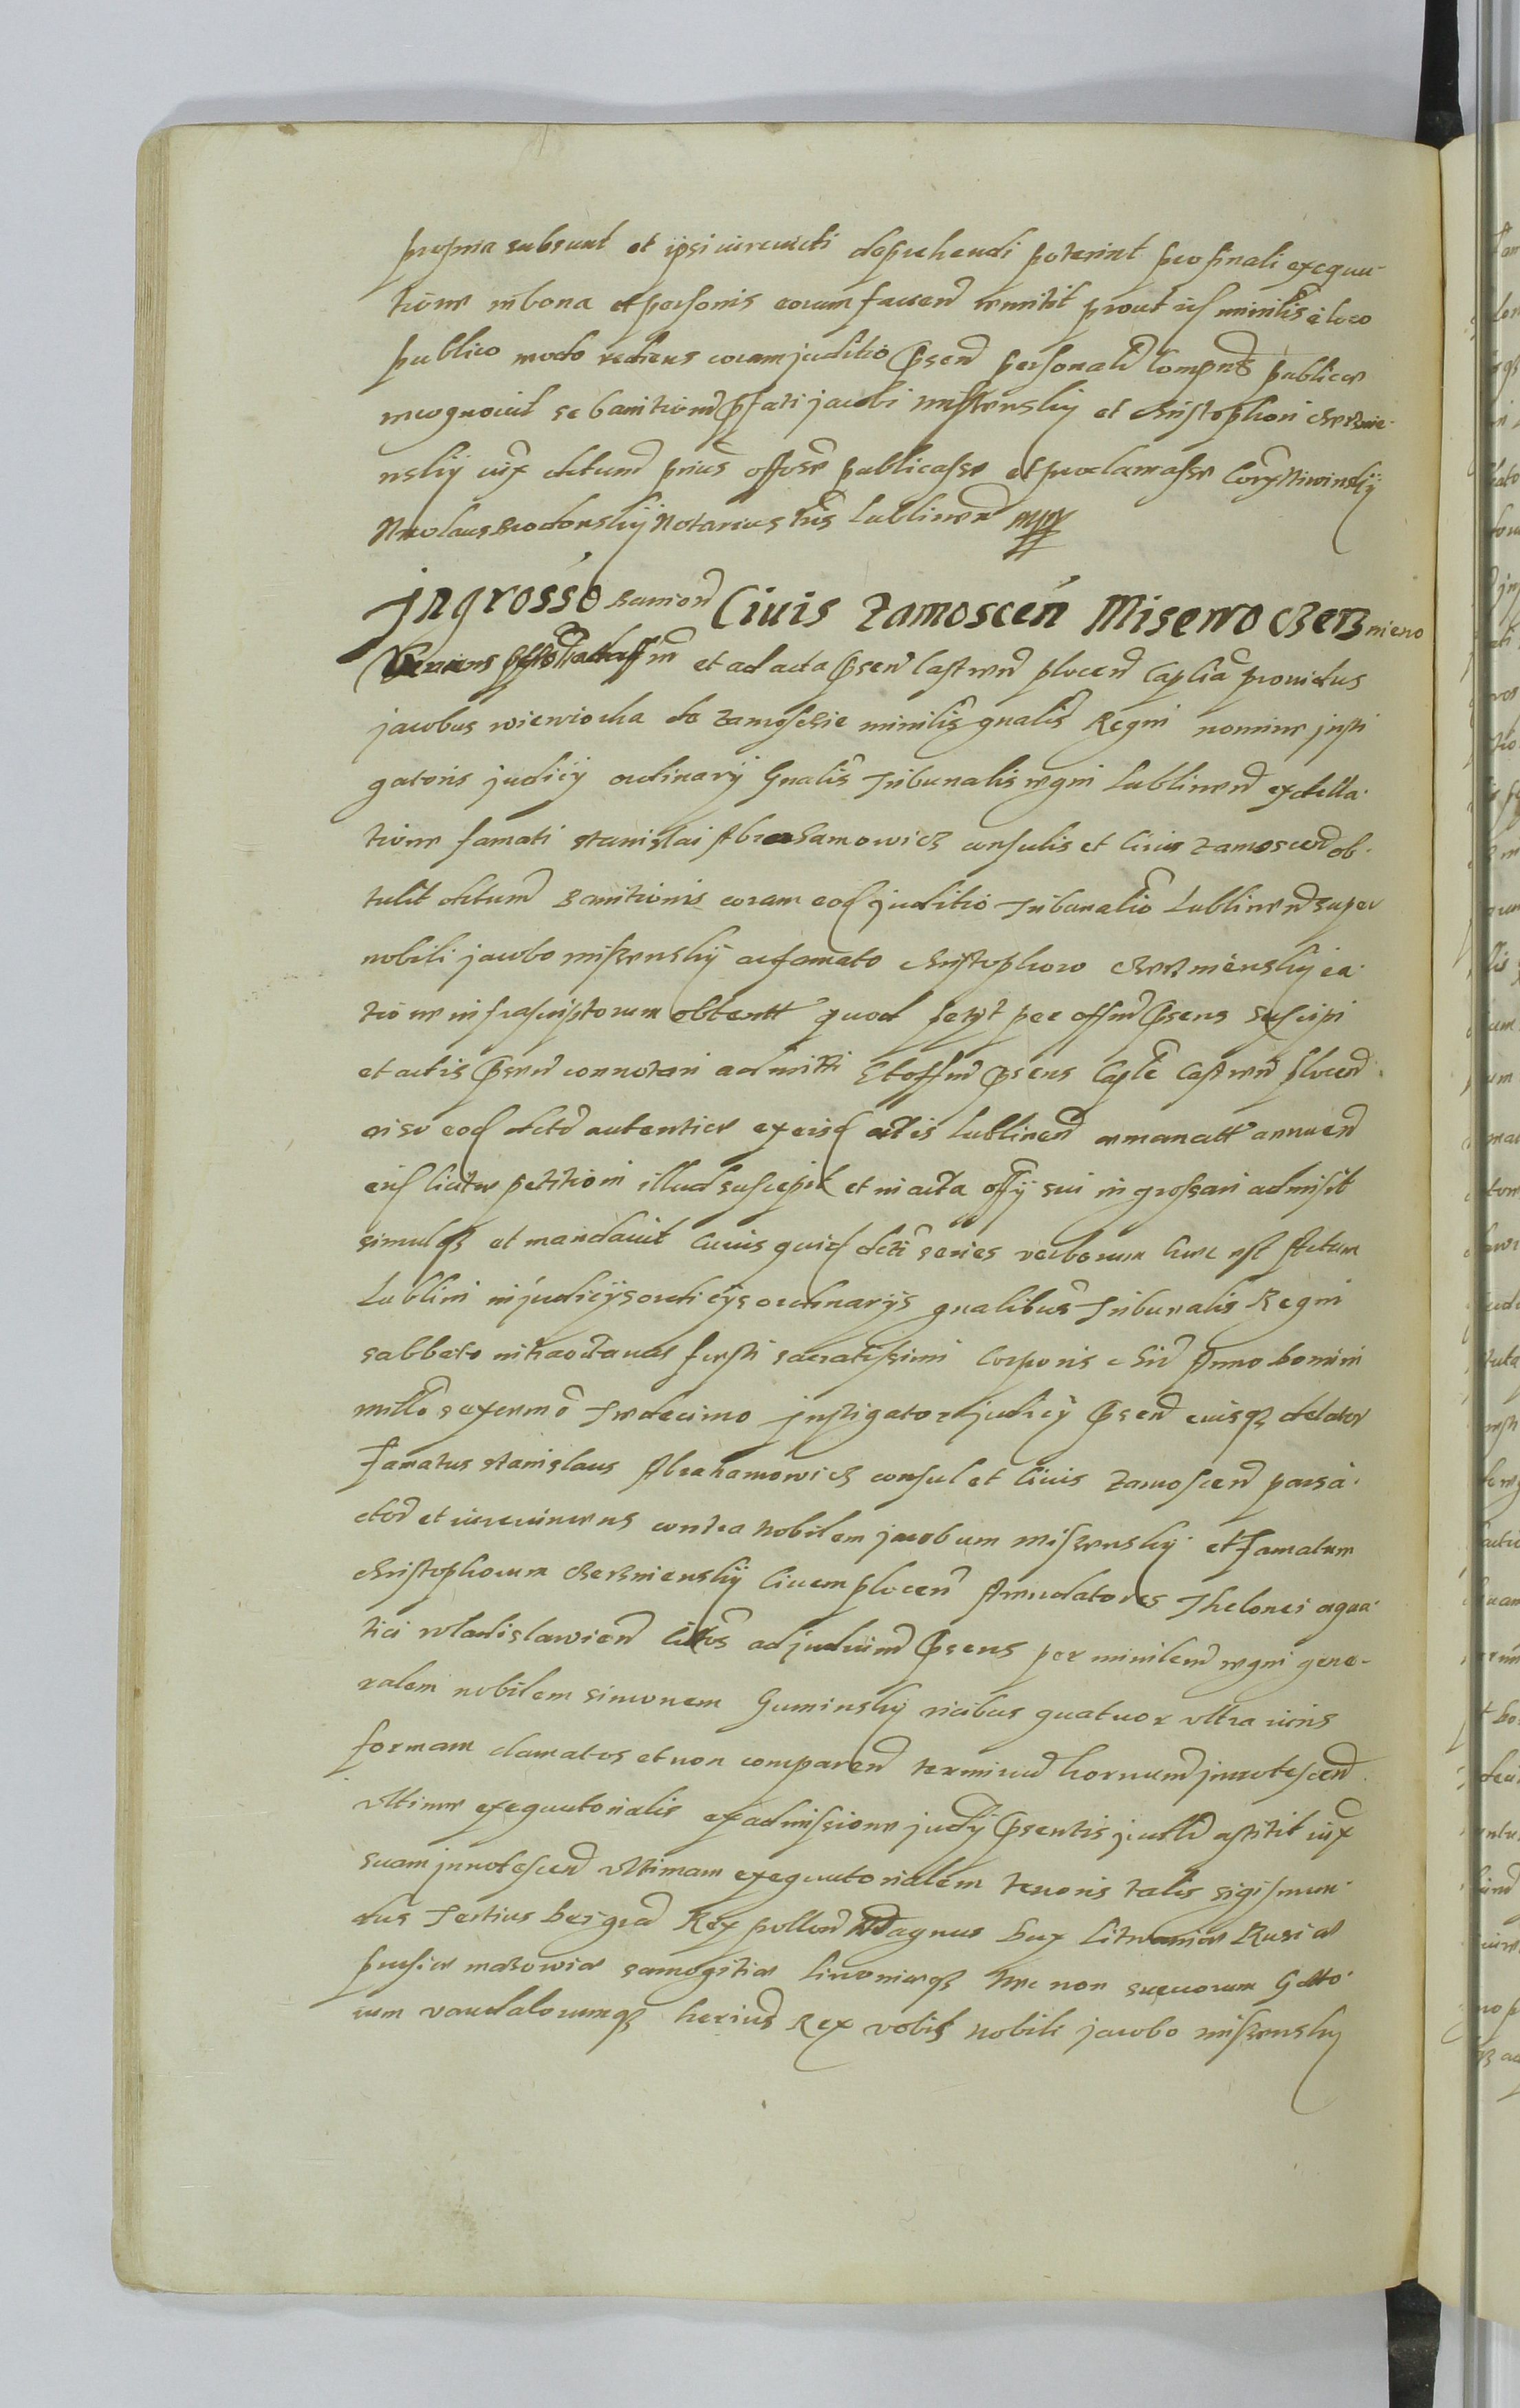 propria subsunt et ipsi iurevicti deprehendi poterint pro finali exequu-
tione in bona et personis eorum faciend remittit prout id minilis e loco
publico modo rediens coram juditio psen personalr Compns publice
recognovit se banitionem pfati jacobi Misewsky et christophori cherznie-
nskij iux dctum prius offose publicasse et proclamasse Corr
Nicolaus Notarius Tris Lublinen mpp
jngrosso Banion Ciuis Zamoscen Misewo cherznieno
Veniens et ad acta psen Castren plocen Caplia prouidus
jacobus wiewiocha de Zamoscie minilis gnalis Regni nomine justi
gatoris judicij ordinarij Gnalis Tribunalis regni Lublinen ex della-
tione famati stanislai Abrahamowicz consulis et Ciuis Zamoscen ob-
tulit dctum Banitionis coram eod juditio Tribunalis Lublinen super
nobili jacobo misewsky ac famato christophoro cherznienskij ea-
tione infrascriptorum obtentt quod petyt per offm psens suscipi
et actis psen connotari admitti Et offm psens Caple Castren plocen
viso eod dcto autentice ex eisd actis Lublinen emanatt annuen
eid licite petitioni illud suscepit et in acta offij sui ingrossari admisit
simulq et mandauit Cuius quid dcti series verborum haec est Actum
Lublini in judicijs ordinarijs gnalibus Tribunalis Regni
sabbato infra octauas festi sacratissimi Corporis chri Anno Domini
millo sexcenmo Tredecimo justigator judicij psen euisq delator
famatus stanislaus Abrahamowicz consul et Ciuis Zamoscen pars a-
ctor et iurevincens contra Nobilem jacobum Misewsky et famatum
christophorum cherznienskij Ciuem plocen Arendatores Thelonei aqua-
tici wladislawien Citos ad judicium psens per minilem regni gene-
ralem nobilem simonem Guminsky vicibus quatuor vltra iuris
formam clamatos et non comparen terminum hornum jnnotescen
vltime exequutorialis ex admissione judij psentis attitit iux
suam jnnotescen vltimam exequutorialem tenoris talis sigismun-
dus Tertius Dei gra Rex pollon Magnus Dux Litwanie Rusie
prusie masowie samogitie liuonieq nec non sueuorum Gotto-
rum vandalorumq herius Rex vobis nobili jacobo misewsky